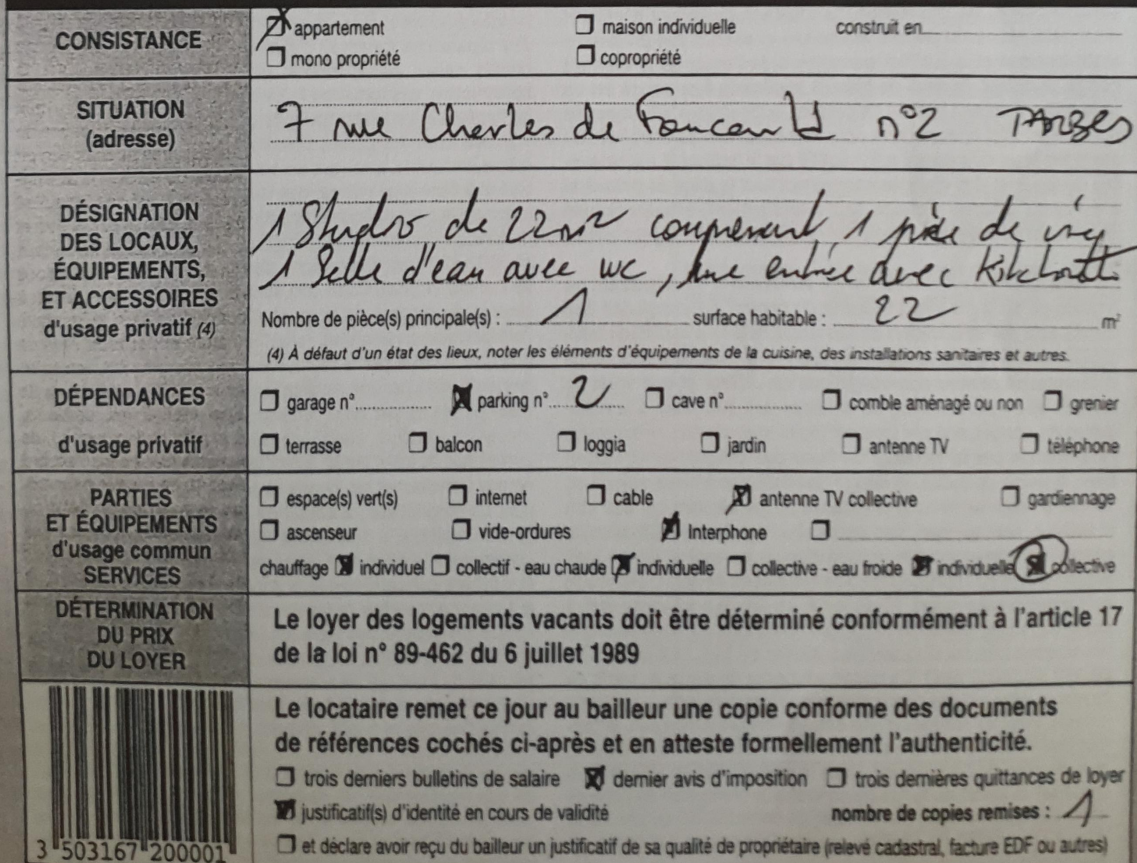 CONSISTANCE
☒ appartement ☐ maison individuelle construit en
☐ mono propriété ☐ copropriété
SITUATION
(adresse)
7 rue Charles de Foucauld n°2 TARBES
DÉSIGNATION
DES LOCAUX,
ÉQUIPEMENTS,
ET ACCESSOIRES
d'usage privatif (4)
1 Studio de 22m2 comprenant 1 pièce de
1 Salle d'eau avec wc, une entrée avec
Nombre de pièce(s) principale(s) : 1 surface habitable : 22 m²
(4) À défaut d'un état des lieux, noter les éléments d'équipements de la cuisine, des installations sanitaires et autres.
DÉPENDANCES
d'usage privatif
☐ garage n° ☒ parking n° 2 ☐ cave n° ☐ comble aménagé ou non ☐ grenier
☐ terrasse ☐ balcon ☐ loggia ☐ jardin ☐ antenne TV ☐ téléphone
PARTIES
ET ÉQUIPEMENTS
d'usage commun
SERVICES
☐ espace(s) vert(s) ☐ internet ☐ cable ☒ antenne TV collective ☐ gardiennage
☐ ascenseur ☐ vide-ordures ☒ Interphone ☐
chauffage ☒ individuel ☐ collectif - eau chaude ☒ individuelle ☐ collective - eau froide ☒ individuelle ☒ collective
DÉTERMINATION
DU PRIX
DU LOYER
Le loyer des logements vacants doit être déterminé conformément à l'article 17
de la loi n° 89-462 du 6 juillet 1989
Le locataire remet ce jour au bailleur une copie conforme des documents
de références cochés ci-après et en atteste formellement l'authenticité.
☐ trois derniers bulletins de salaire ☒ dernier avis d'imposition ☐ trois dernières quittances de loyer
☒ justificatif(s) d'identité en cours de validité nombre de copies remises : 1
☐ et déclare avoir reçu du bailleur un justificatif de sa qualité de propriétaire (relevé cadastral, facture EDF ou autres)
3 503167 200001